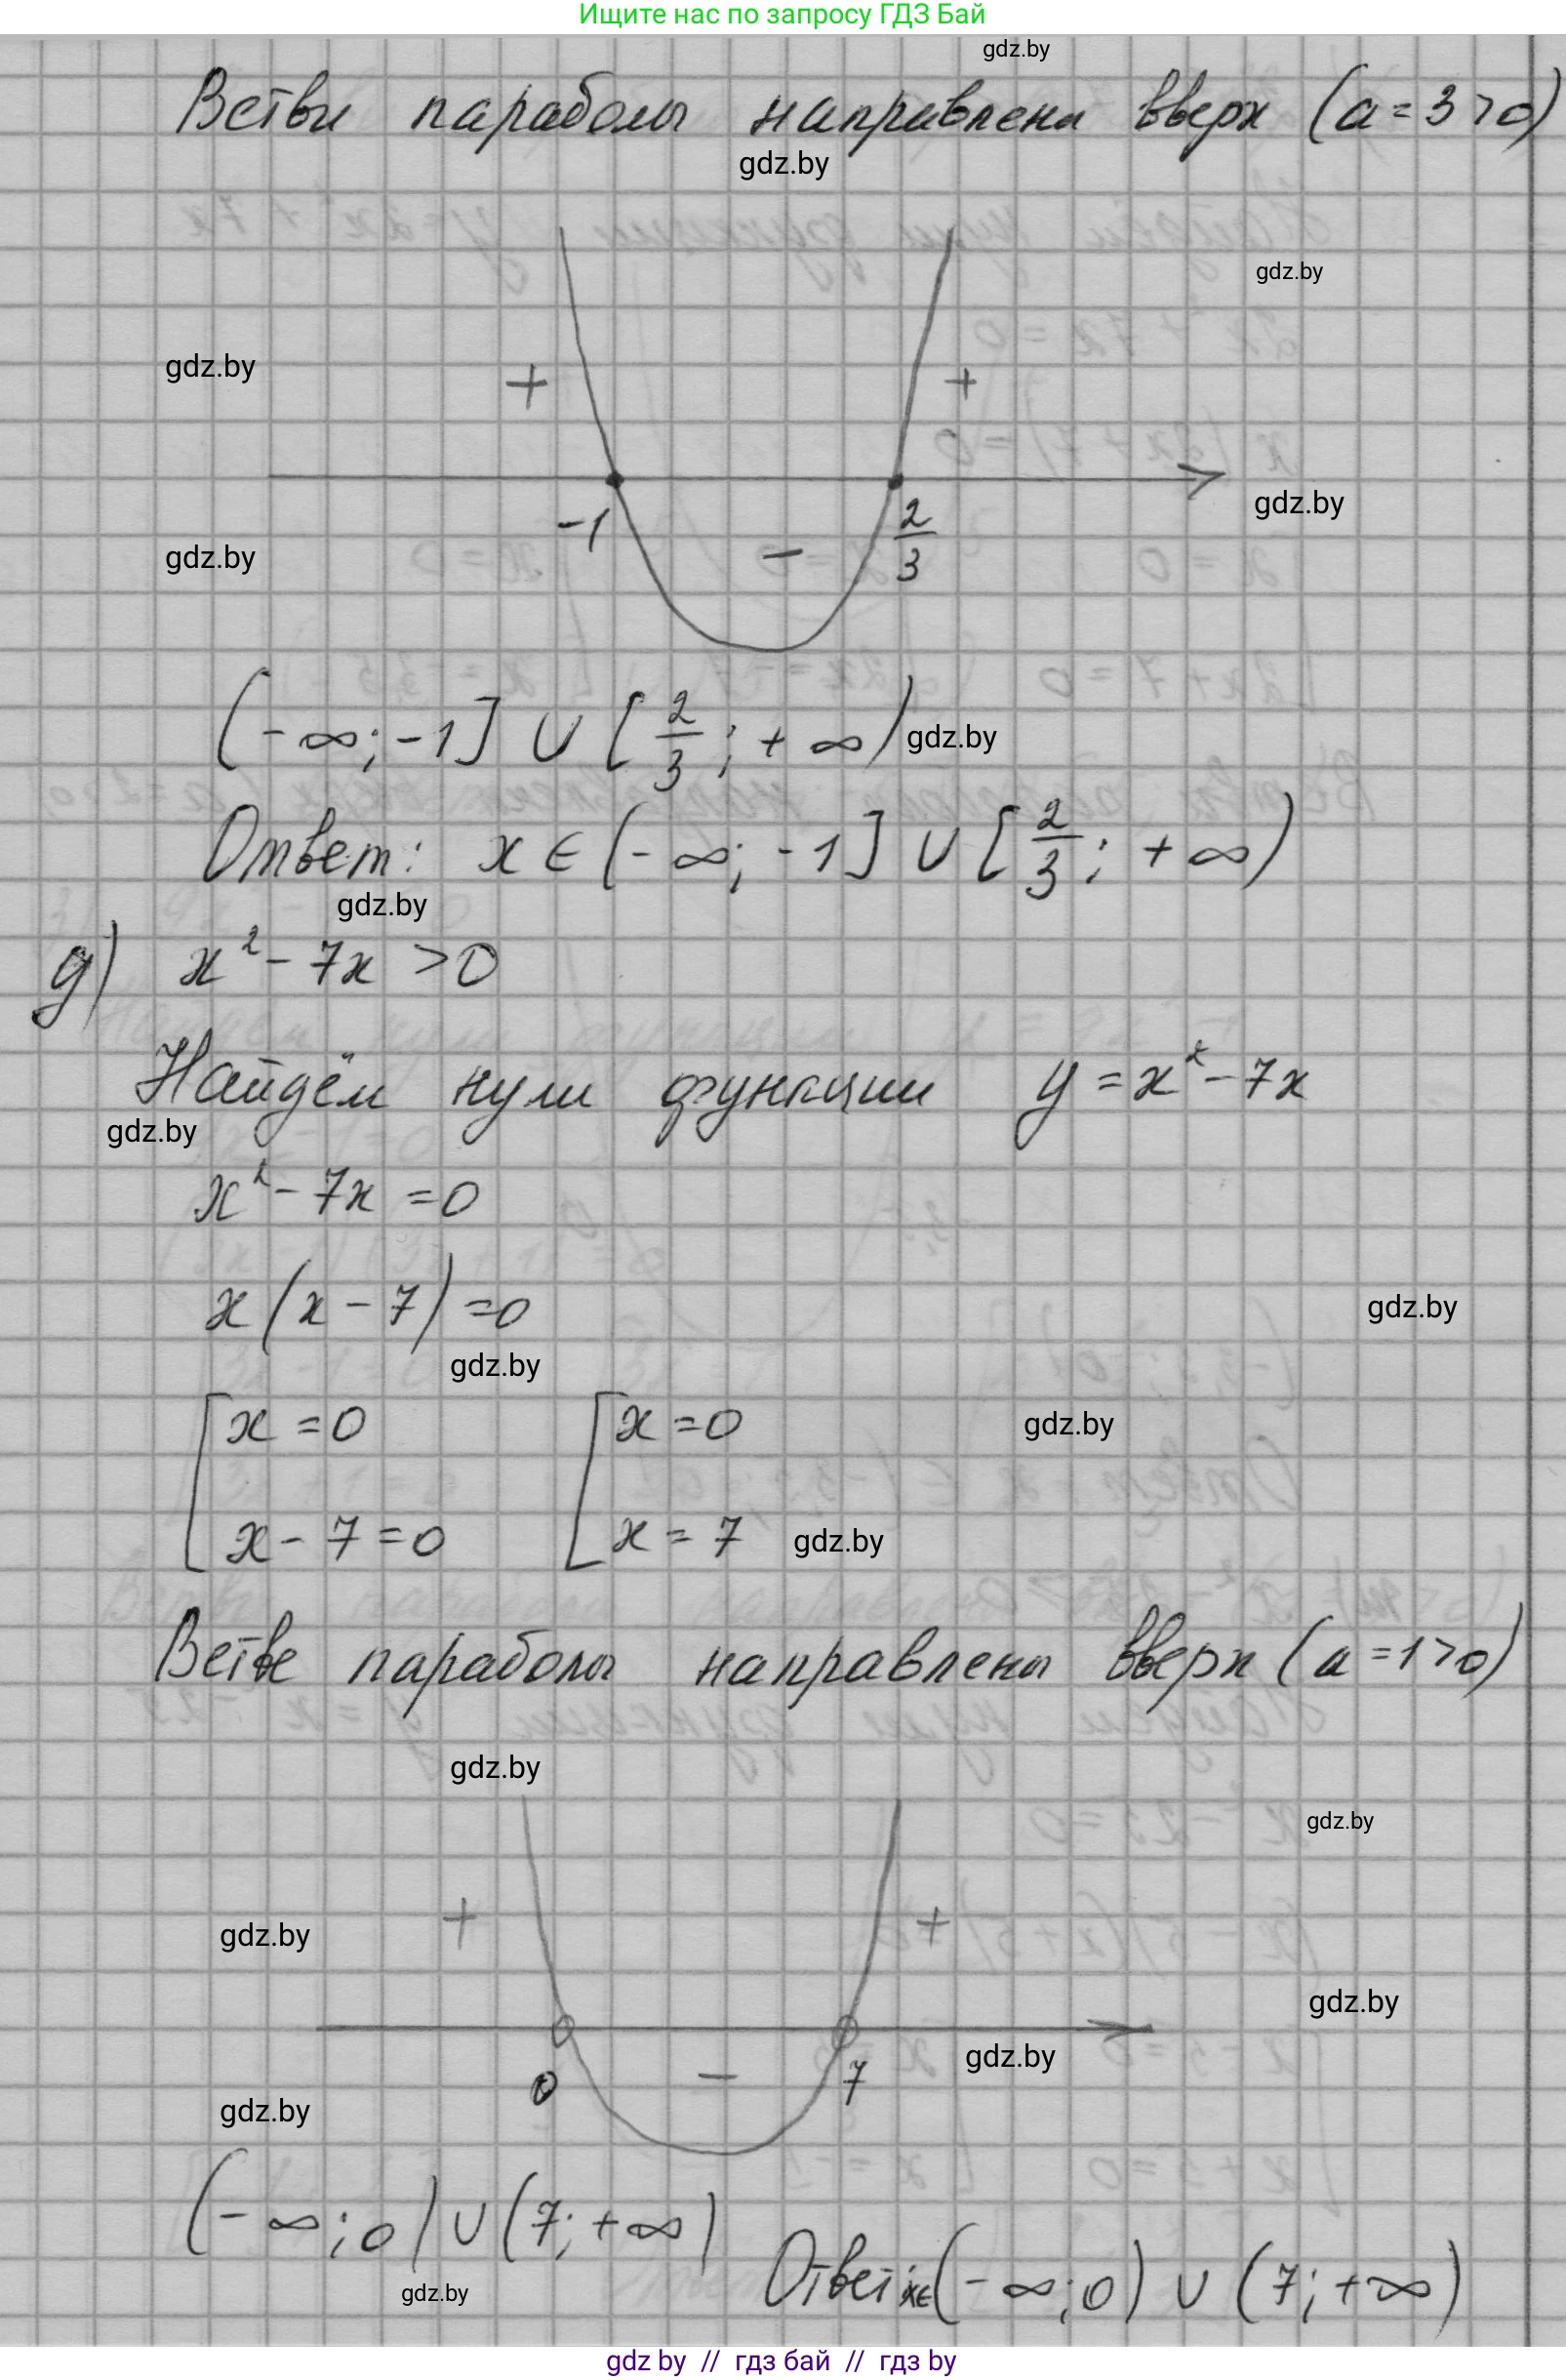 Ищите нас по запросу ГДЗ Бай
gdz.by
Ветви параболы направлены вверх (a = 3 > 0)
gdz.by
gdz.by
gdz.by
+ +
gdz.by
-1 - 2/3
gdz.by
(-∞; -1] ∪ [2/3; +∞)
gdz.by
Ответ: x ∈ (-∞; -1] ∪ [2/3; +∞)
gdz.by
д) x² - 7x > 0
Найдём нули функции y = x² - 7x
gdz.by
x² - 7x = 0
x(x - 7) = 0
gdz.by
gdz.by
[x = 0 [x = 0
gdz.by
x - 7 = 0 x = 7
gdz.by
Ветве параболы направлены вверх (a = 1 > 0)
gdz.by
gdz.by
+ +
gdz.by
gdz.by
gdz.by
0 - 7
gdz.by
(-∞; 0) ∪ (7; +∞)
Ответ: x∈(-∞; 0) ∪ (7; +∞)
gdz.by
gdz by // гдз бай // гдз by